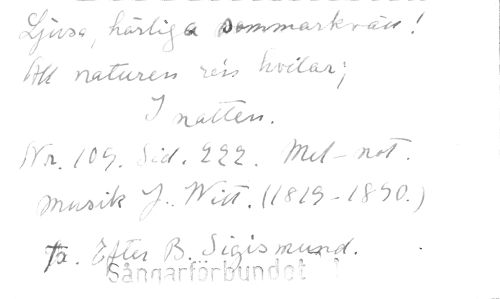 Ljusa, härliga sommarkväll!
All naturen re'n hvilar;
I natten.
Nr. 109. Sid. 222. Mel-not.
Musik J. Witt. (1819-1890.)
Tx. Efter B. Sigismund.
Sångarförbundet